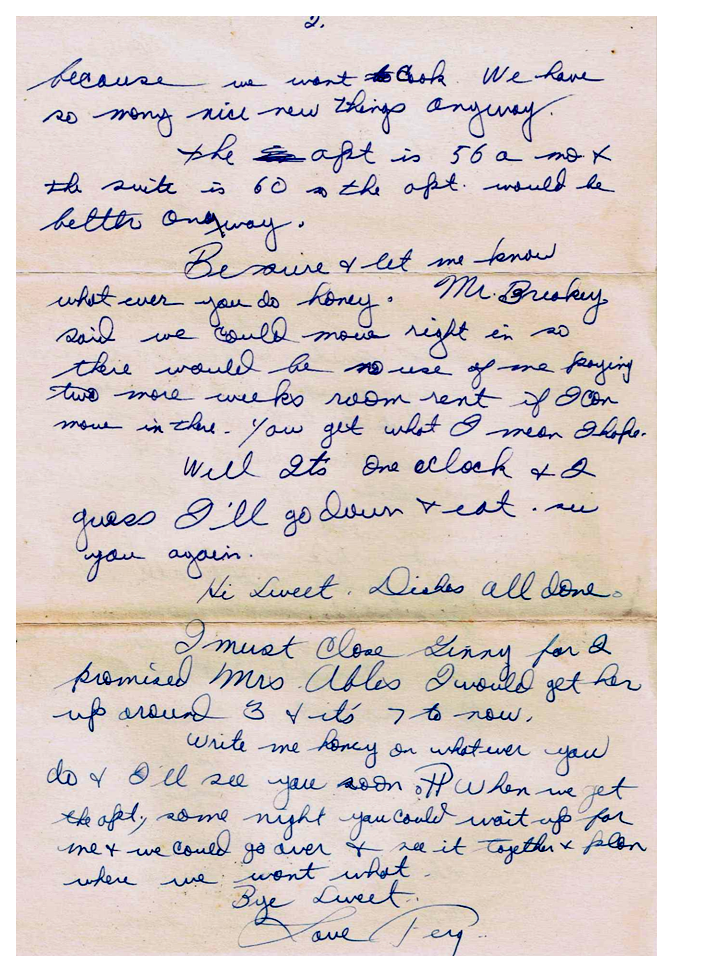 2.
because we want to cook. We have
so many nice new things anyway.
The apt is 56 a mo &
the suite is 60 so the apt. would be
better anyway.
Be sure & let me know
what ever you do honey. Mr. Breakey
said we could move right in so
there would be no use of me paying
two more weeks room rent if I can
move in there. You get what I mean I hope.
Well It's one oclock & I
guess I'll go down & eat. see
you again.
Hi Sweet. Dishes all done.
I must close Ginny for I
promised Mrs Ables I would get her
up around 3 & it's 7 to now.
Write me honey on whatever you
do & I'll see you soon. When we get
the apt, some night you could wait up for
me & we could go over & see it together & plan
where we want what.
Bye Sweet.
Love